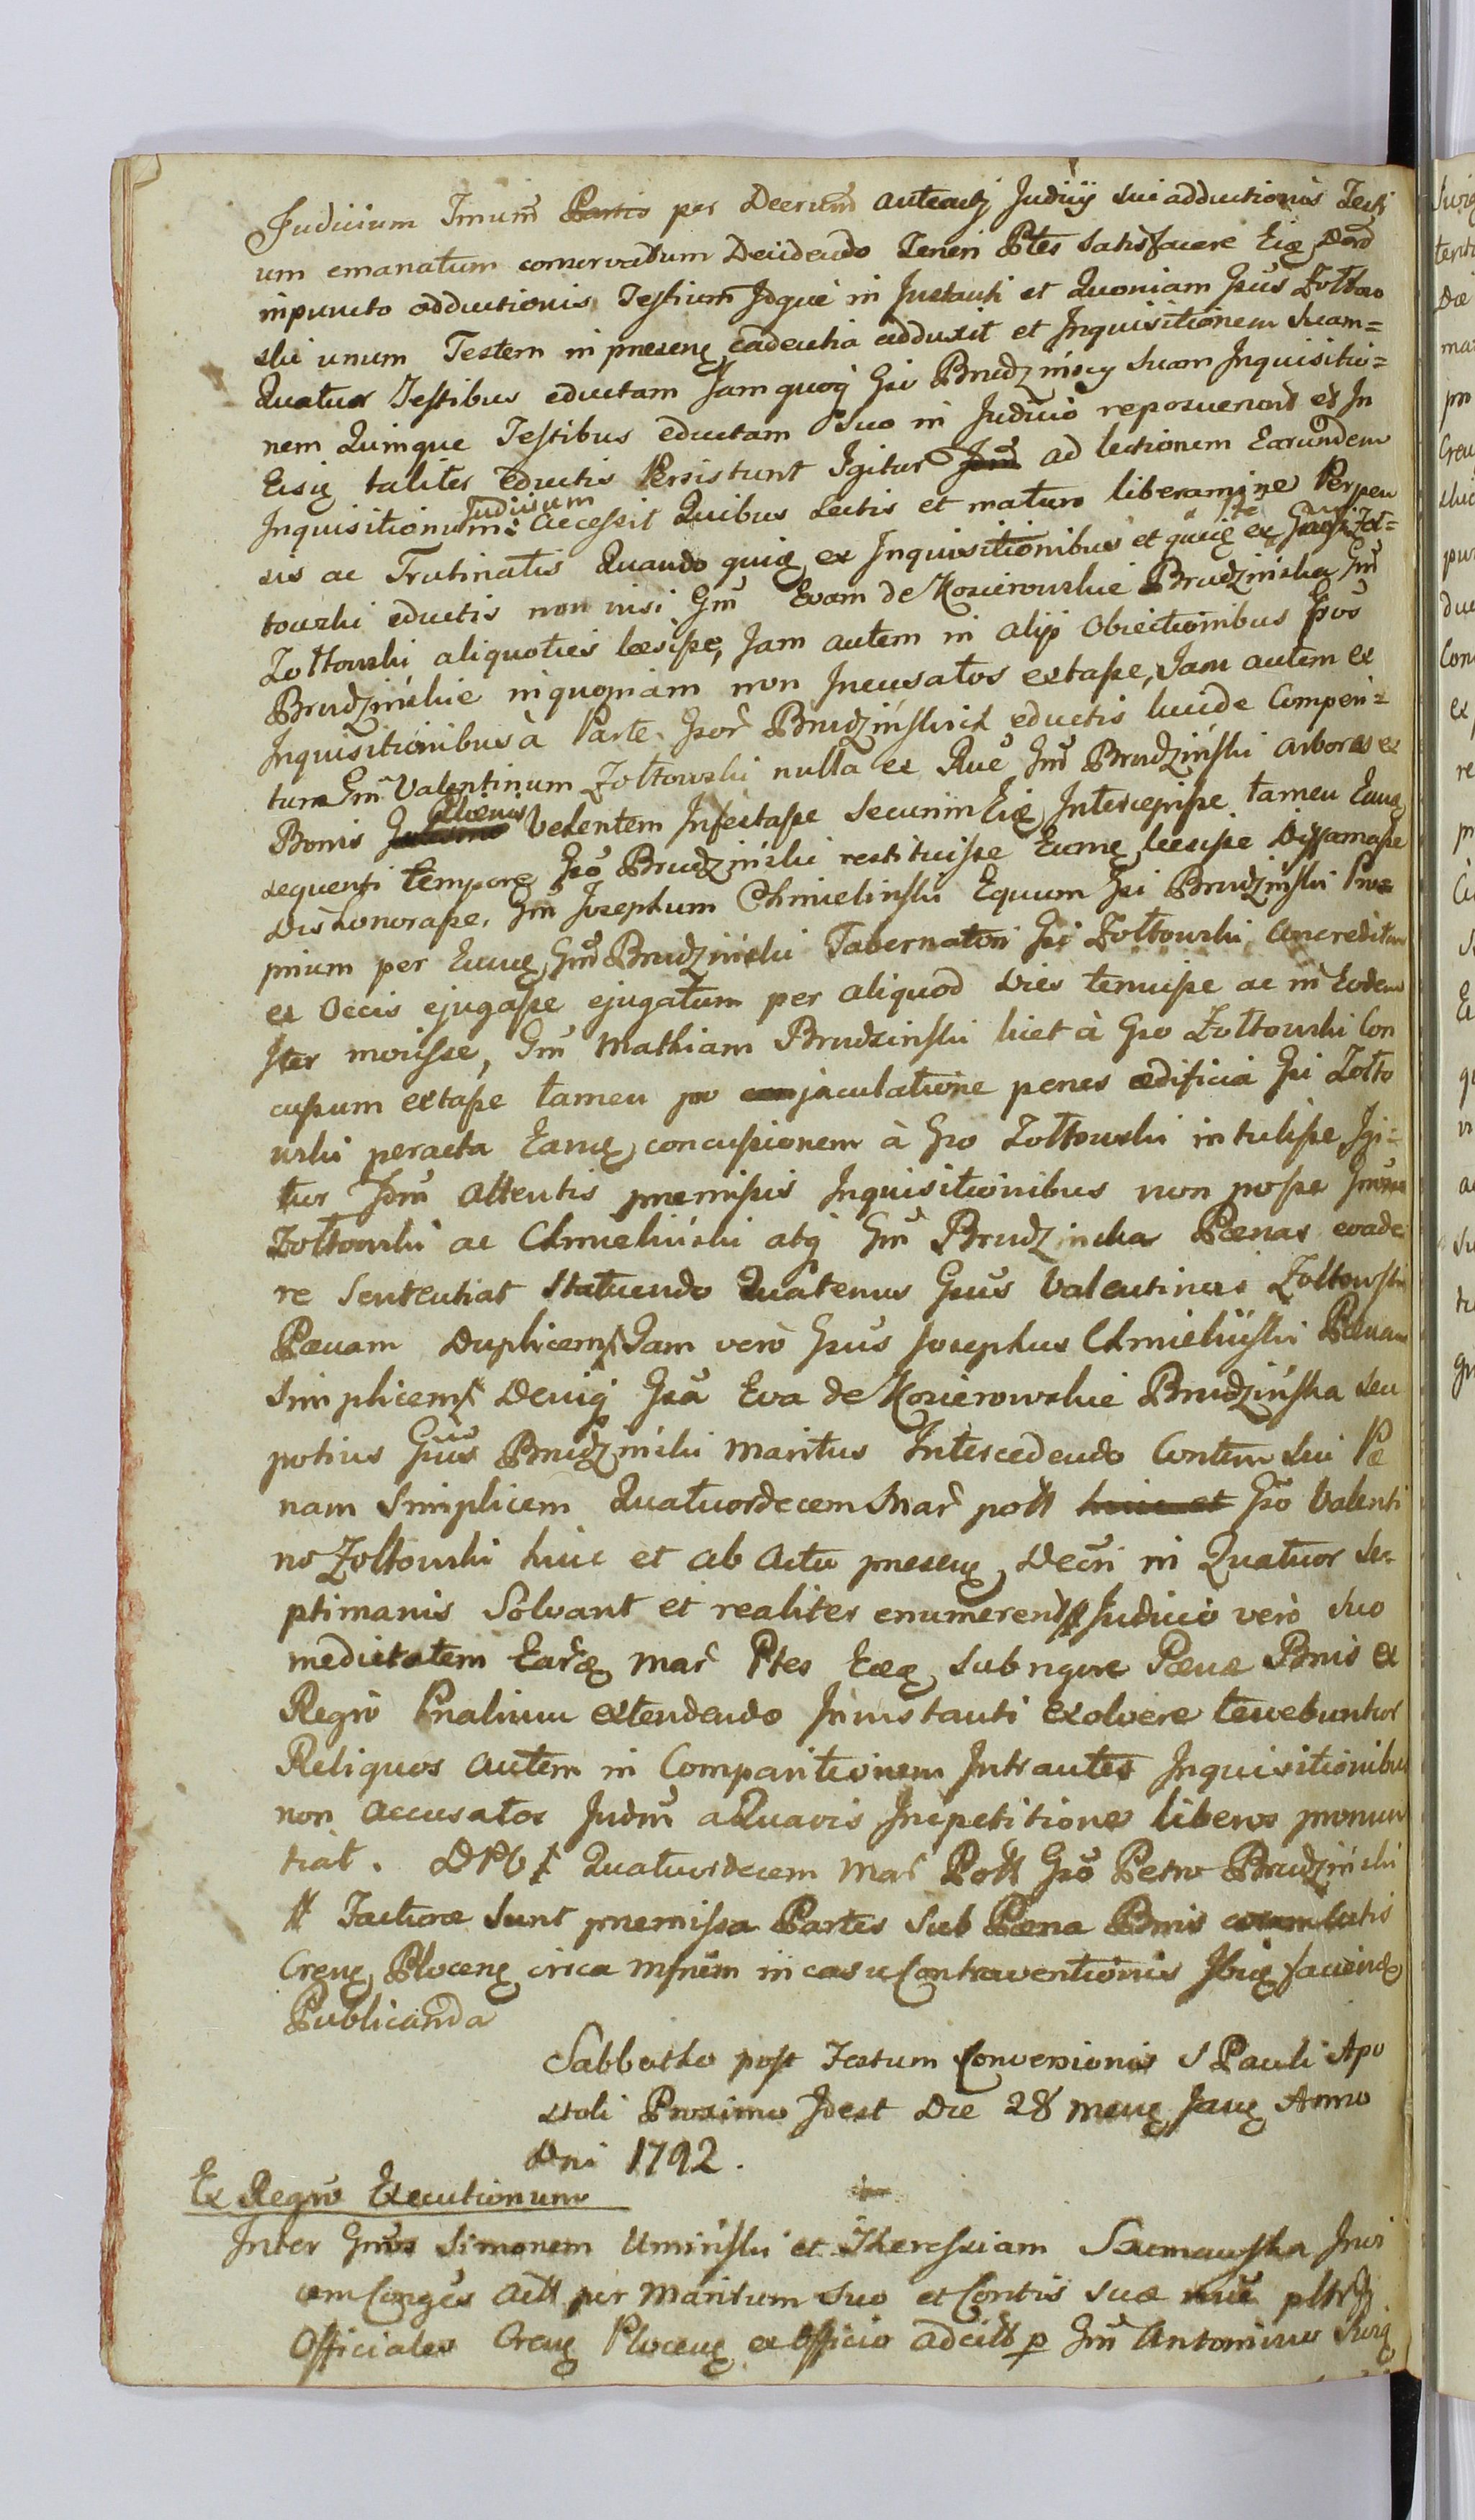 Judicium Imum per Decrum anteactj Judicij sui adductionis Testi
um emanatum conservatum Decidendo Teneri Ptes satisfacere
in puncto adductionis Testium Idque in Instanti et Quoniam Gsus Zołtow
ski unum Testem in praesenę cadentia adduxit et Inquisitionem suam=
Quatuor Testibus eductam Jam quoq Gsi Brudzińscy suam Inquisitio=
nem Quinque Testibus eductam suo in Judicio reposuerunt et In
Eisę taliter eductis Persistunt Igitur ad lectionem Earundem
Inquisitionum Judicium accessit Quibus Lectis et maturo liberamine Perpen
sis ac Trutinatis Quando quię ex Inquisitionibus et ex Zoł=
towski eductis non nisi Gm Evam de Kosierowskie Brudzińska Gm
Zołtowski aliquoties læsisse, Jam autem in alijs Obiectionibus Gsos
Brudzińskie in quoniam non Incusatos extasse, Jam autem ex
Inquisitionibus à Parte Gsor Brudzińskich eductis lucide Comperi=
tum Gm Valentinum Zołtowski nulla ex Rne Gm Brudziński arbores ex
Bonis Vedentem Infestasse Securim Eię Intercepisse tamen Eanę
sequenti tempore Gso Brudziński restituisse Eumę læsisse Diffamasse
Dishonorasse. Gm Josephum Chmielinski Equum Gsi Brudziński Pro
prium per Eunę Gm Brudziński Tabernatori Gsi Zołtowski Concreditum
ex Occis ejugasse ejugatum per aliquod dies tenuisse ac in Eodem
Iter movisse, Gm Mathiam Brudzinski licet à Gso Zołtowski Con
cussum extasse tamen pro jaculatione penes ædificia Gsi Zołto
wski peracta Eanę concussionem à Gso Zołtowski intulisse Igi=
tur Jdm Attentis præmissis Inquisitionibus non posse
Zołtowski ac Chmieliński atq Gm Brudzinska Pænas evade
re Sententiat Statuendo Quatenus Gsus Valentinus Zołtowski
Pænam Duplicem Jam verò Gsus Josephus Chmieliński Pænam
Simplicem Deniq Gsa Eva de Kosierowskie Brudzińska seu
potius Gsus Brudziński Maritus Intercedendo Contem sui Pæ
nam Simplicem Quatuordecem Mar poll Gso Valenti
no Zołtowski huic et ab Actu præsenę Decri in Quatuor Se=
ptimanis Solvant et realiter enumerent Judicio verò suo
medietatem Earę Mar Ptes Eæę sub rigore Pænæ Bnis ex
Regro Pnalium extendendo Ininstanti Exolvere tenebuntur
Reliquos autem in Comparitionem Intrantes Inquisitionibus
non Accusatos Judm a Quavis Inpetitione liberos pronun
tiat. Quatuordecem Mar Poll Gso Petro Brudziński
Facturæ sunt præmissa Partes sub Pæna Bnis latis
Crenę Plocenę circa Msnem in casu Contraventionis Ibię faciendę
Publicanda
Sabbatho post Festum Conversionis S Pauli Apo
stoli Proximo Idest Die 28 Menę Janę Anno
Dni 1792.
Ex Regro Executionum
Inter Gnos Simonem Uminski et Theressiam Szemanska Invi
cem Conges Act per Maritum suo et Contis suæ pltff
Officiales Crenę Plocenę ex Officio ad citt p Gm Antonium